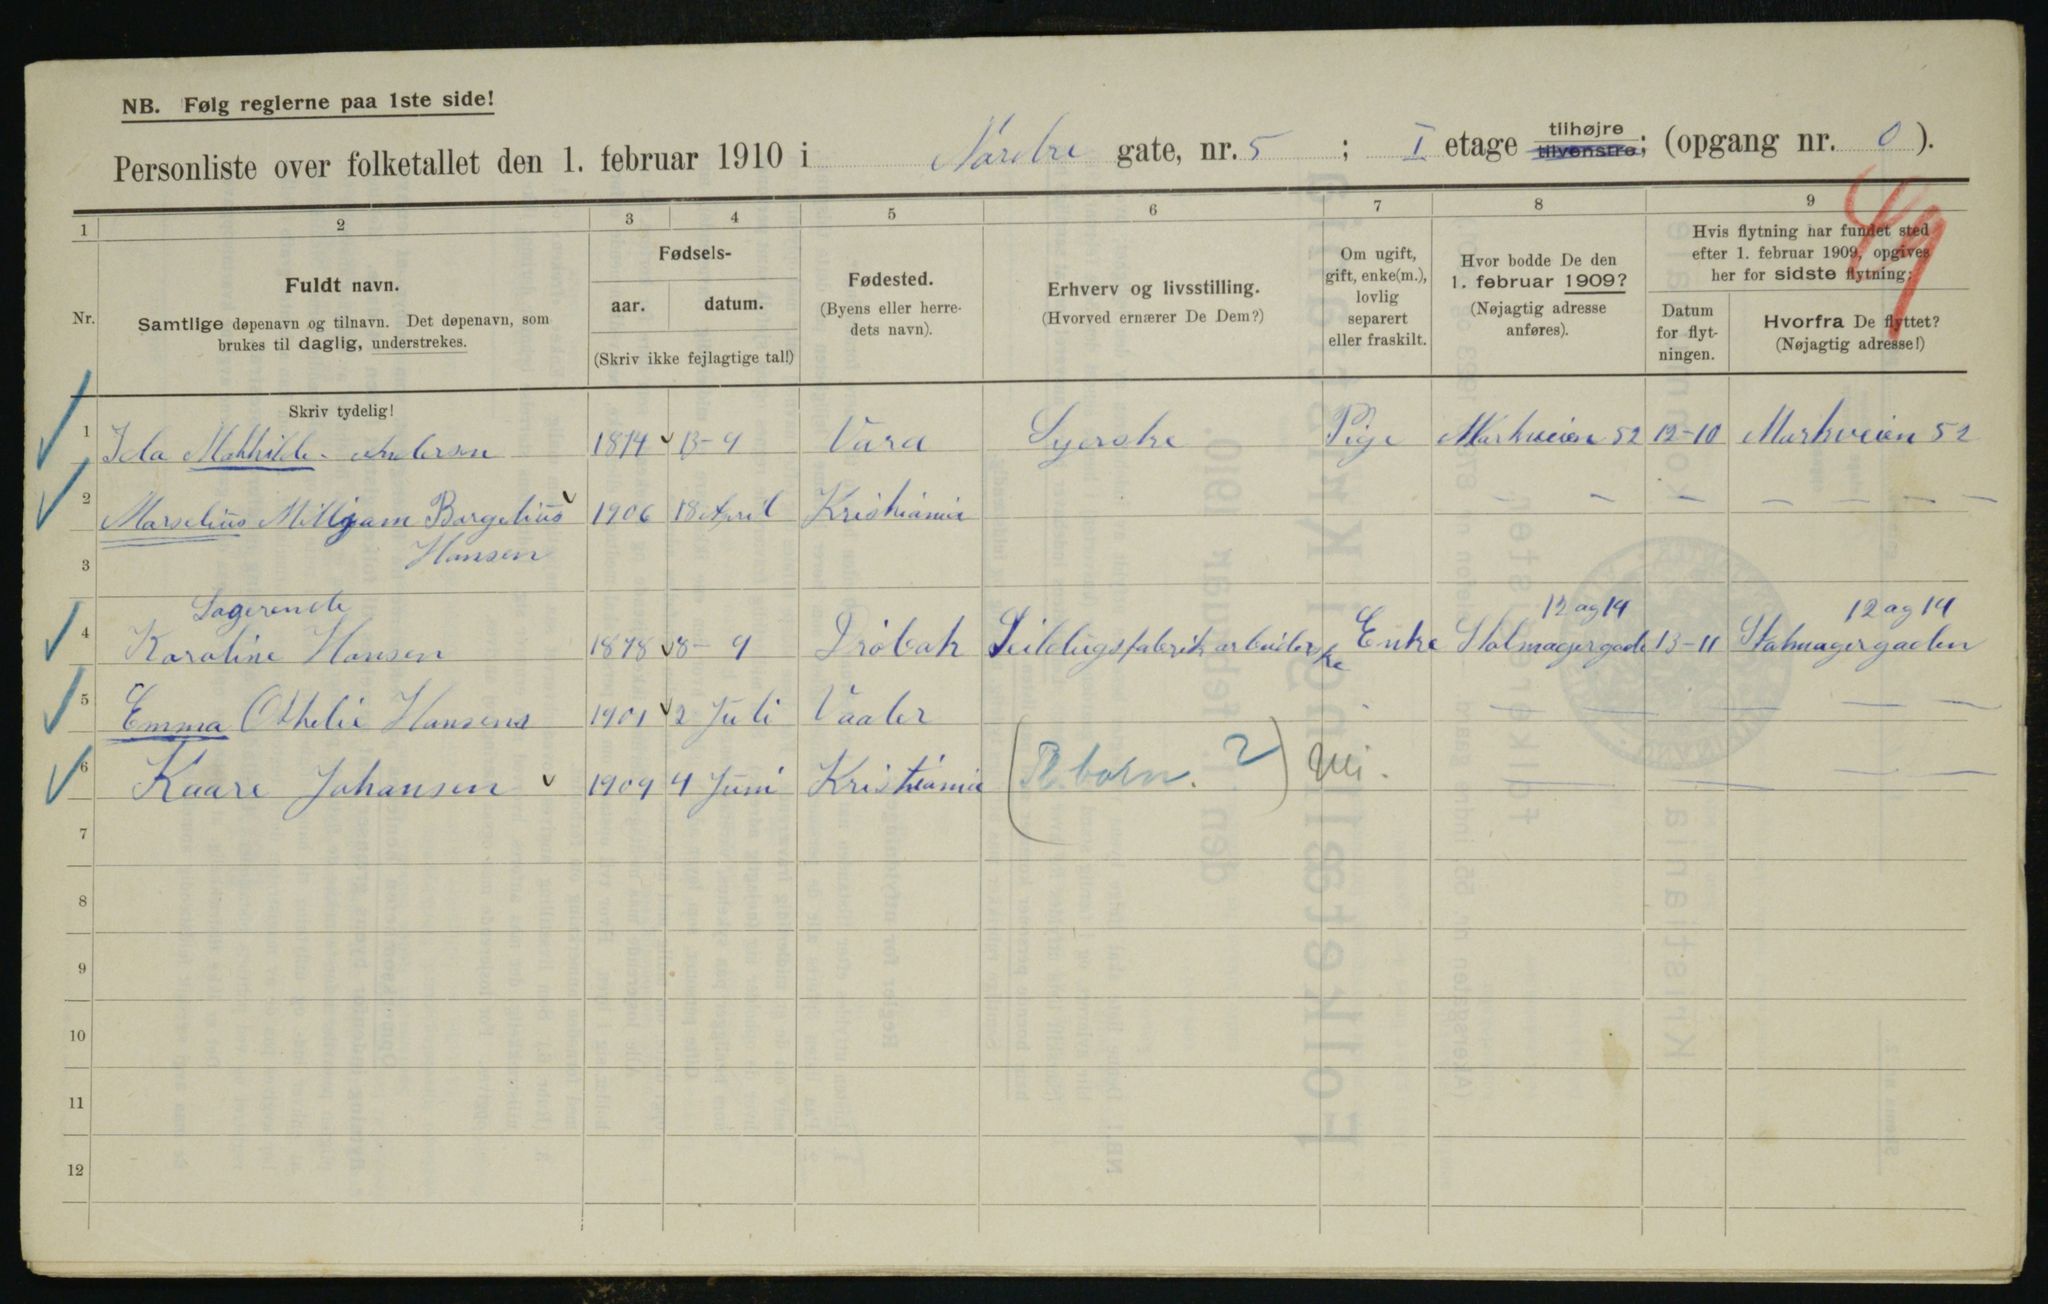 NB. Følg reglerne paa 1ste side!
Personliste over folketallet den 1. februar 1910 i Nordre gate, nr. 5 ; I etage tilhøjre tilvenstre; (opgang nr. 0 ).
1 2 3 4 5 6 7 8 9
Nr.
Fuldt navn.
Samtlige døpenavn og tilnavn. Det døpenavn, som
brukes til daglig, understrekes.
Fødsels-
aar. datum.
(Skriv ikke fejlagtige tal!)
Fødested.
(Byens eller herre-
dets navn).
Erhverv og livsstilling.
(Hvorved ernærer De Dem?)
Om ugift,
gift, enke(m.),
lovlig
separert
eller fraskilt.
Hvor bodde De den
1. februar 1909?
(Nøjagtig adresse
anføres).
Hvis flytning har fundet sted
efter 1. februar 1909, opgives
her for sidste flytning:
Datum
for flyt-
ningen.
Hvorfra De flyttet?
(Nøjagtig adresse!)
Skriv tydelig!
1 Ida Mathilde Andersen 1874 13-9 Vard Syerske Pige Markveien 52 12-10 Markveien 52
2 Marselius Milljam Borgelius 1906 18 April Kristiania — — — — — — —
3 Hansen
Logerende 12 og 14 12 og 14
4 Karoline Hansen 1878 8-9 Drøbak Seildugsfabrik arbeiderske Enke Stolmagergade 13-11 Stolmagergaden
5 Emma Othelie Hansen 1901 2 Juli Vaaler — — — — —
6 Kaare Johansen 1909 4 Juni Kristiania (Pl barn. ?) — — — —
7
8
9
10
11
12